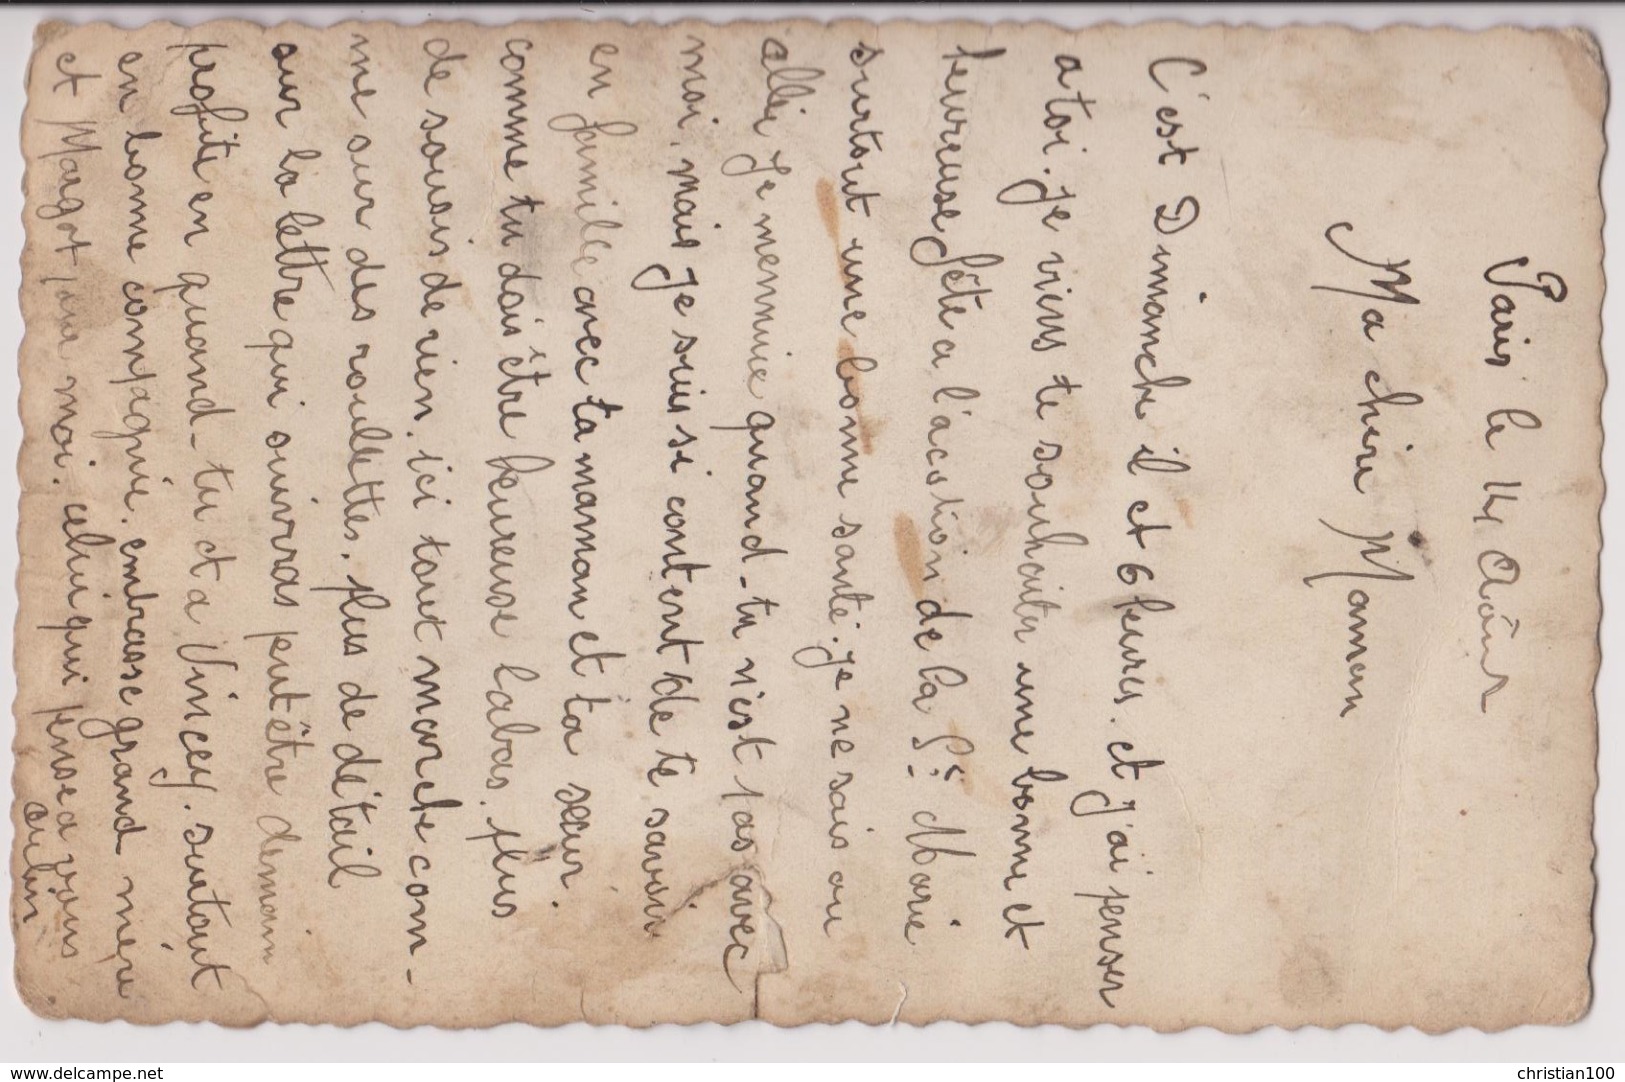 Paris le 14 Août
Ma chère Maman
C'est Dimanche il et 6 heures. et j'ai penser
a toi. je viens te souhaiter une bonne et
heureuse fête a l'acation de la Ste Marie
surtout une bonne santé. je ne sais ou
allé je mennuie quand-tu n'est pas avec
moi. mais je suis si content de te savoir
en famille avec ta maman et ta sœur.
comme tu dois être heureuse labas. plus
de soucis de rien. ici tout marche com-
me sur des roulettes. plus de détail
sur la lettre qui suivras peut être demain
profite en quand-tu et a Vincey. surtout
en bonne compagnie. embrasse grand mère
et Margot pour moi. celui qui pense a vous
www.delcampe.net
christian100